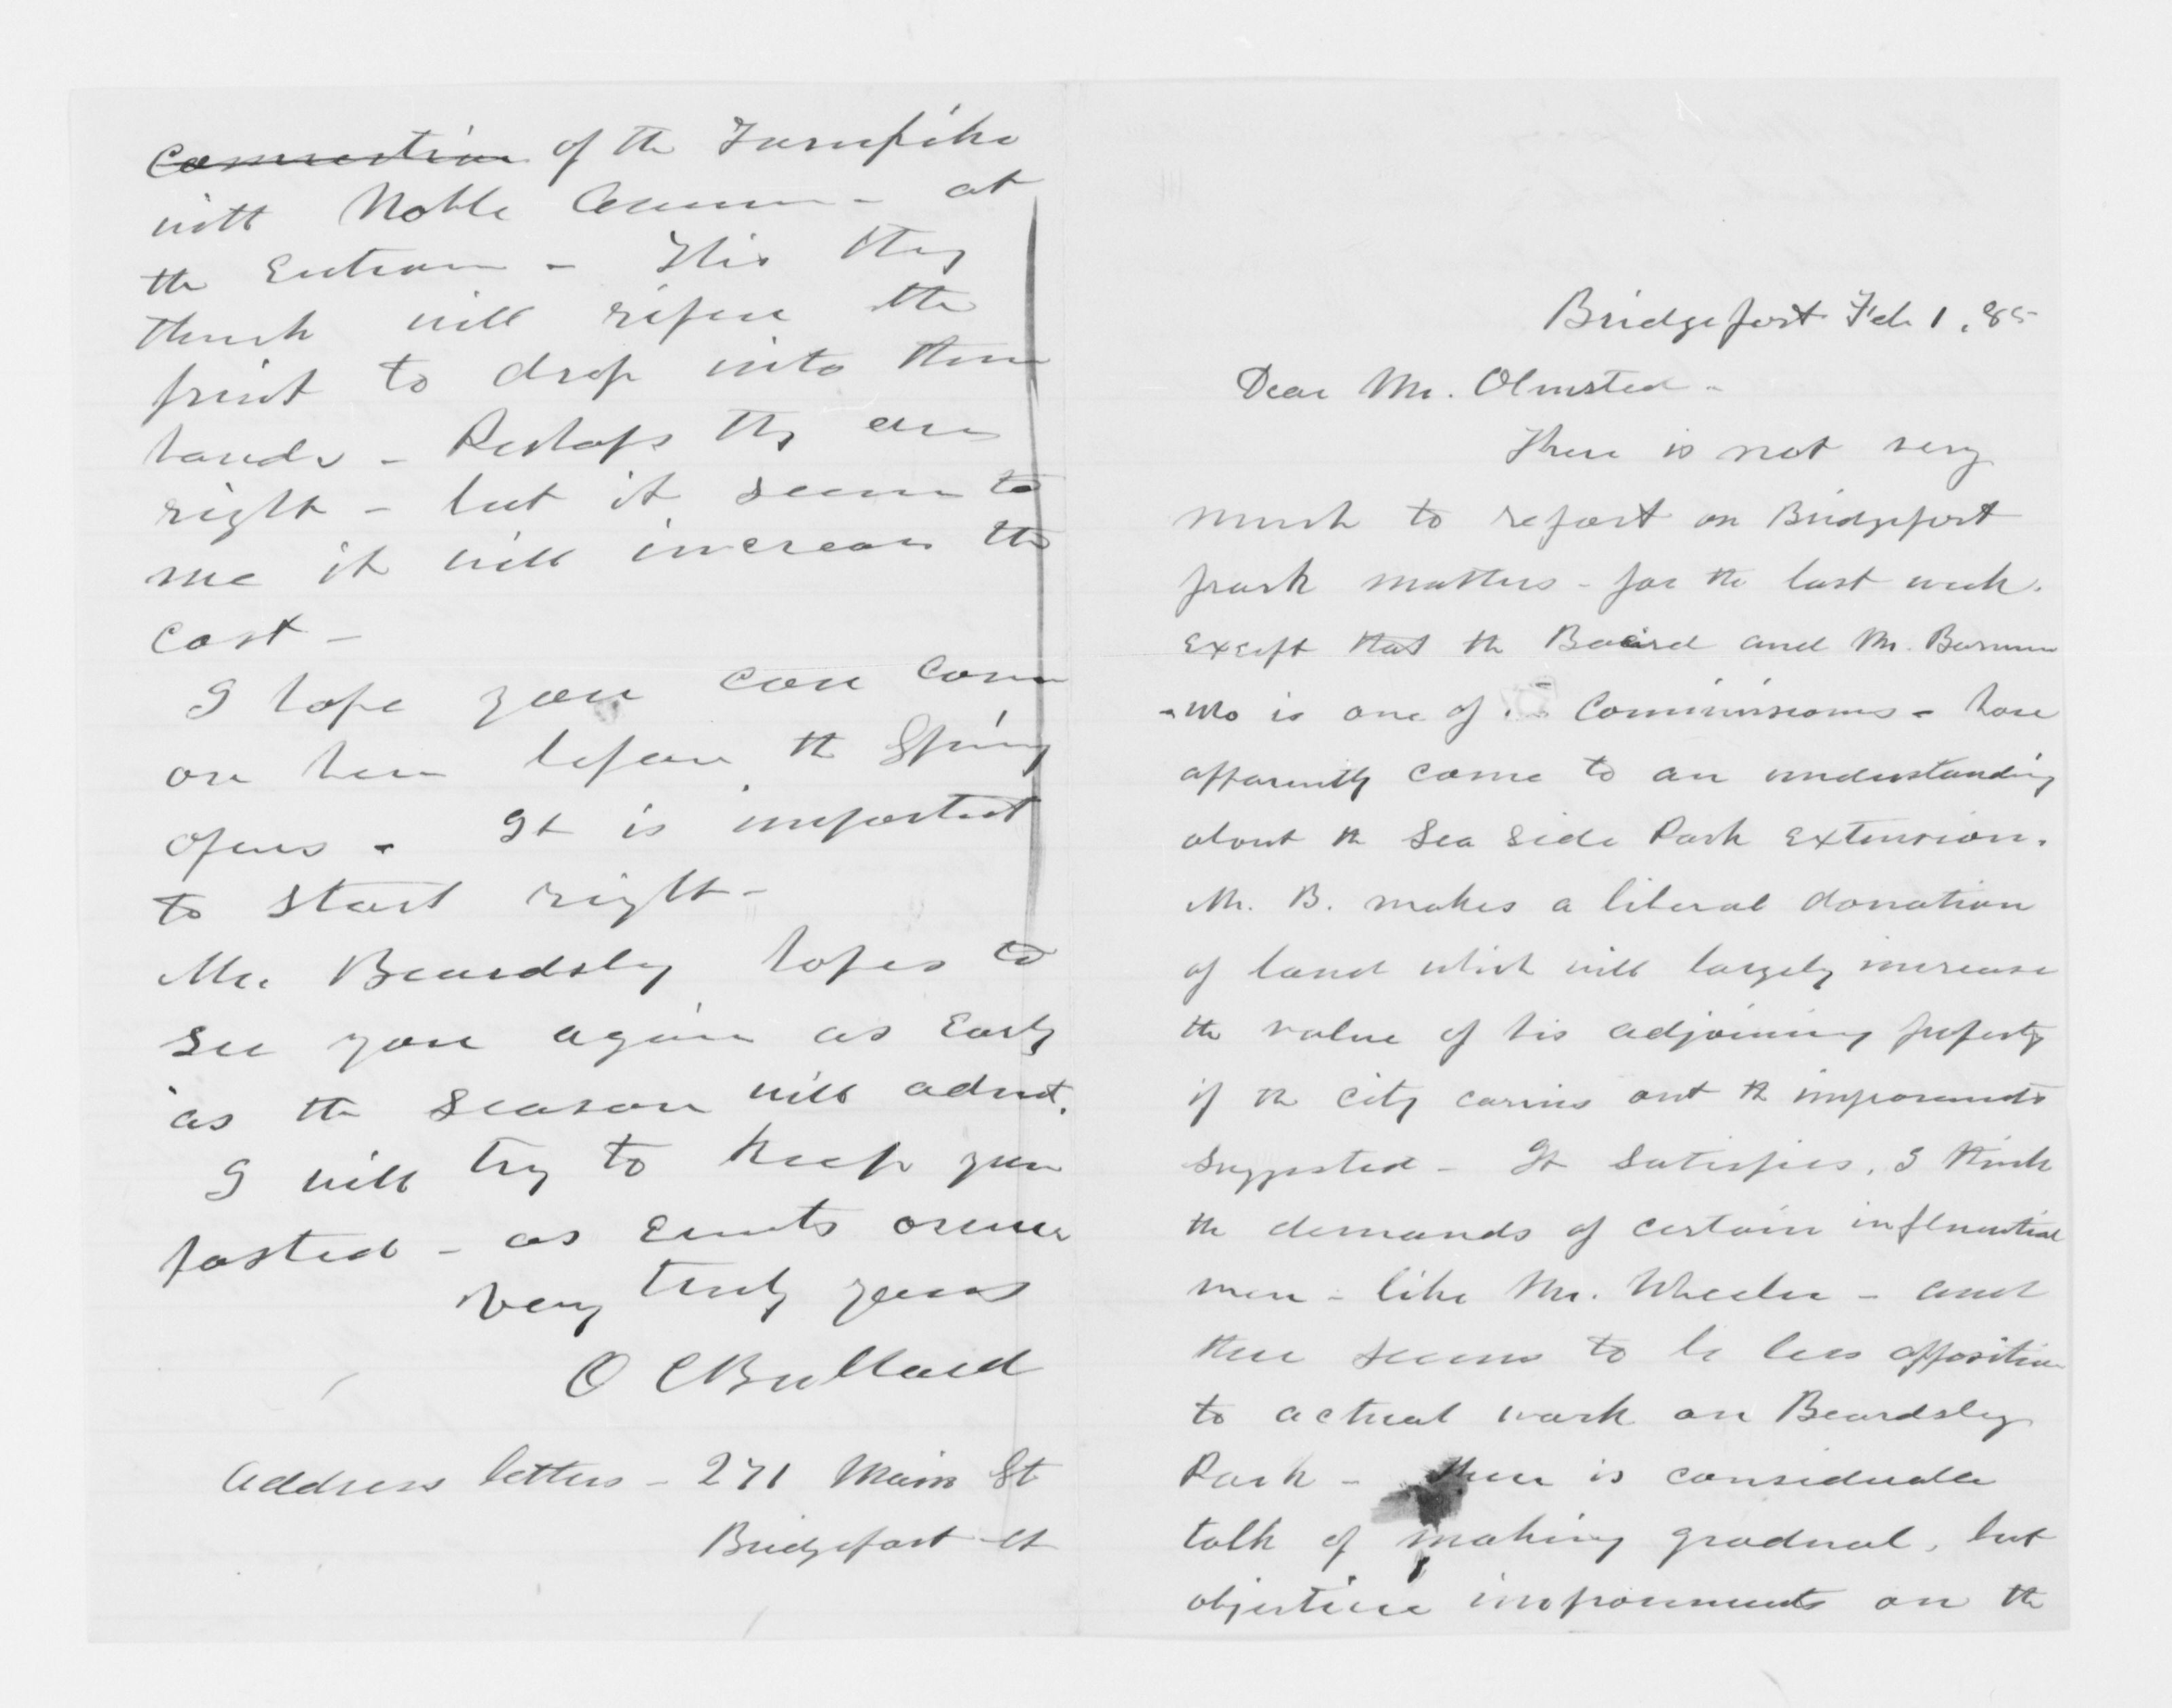 Bridgeport Feb 1, 85
Dear Mr. Olmsted -
There is not very
much to report on Bridgeport
park matters - for the last week.
Except that the Board and Mr. Barnum
- who is one of Commissioners - have
apparently come to an understanding
about the Sea Side Park Extension.
Mr. B. makes a liberal donation
of land which will largely increase
the value of his adjoining property
if the city carries out the improvements
suggested - It satisfies, I think
the demands of certain influential
men - like Mr. Wheeler - and
there seems to be less opposition
to actual work on Beardsley
Park - There is considerable
talk of making gradual, but
objective improvements on the
Connection of the Turnpike
with Noble Avenue - at
the Entrance - This they
think will ripen the
fruit to drop into their
hands - Perhaps they are
right - but it seems to
me it will increase the
cost -
I hope you can come
on here before the Spring
opens - It is important
to start right -
Mr. Beardsley hopes to
see you again as Early
as the season will admit.
I will try to keep you
posted - as events occur
Very truly yours
O C Bullard
Address letters - 271 Main St
Bridgeport Ct